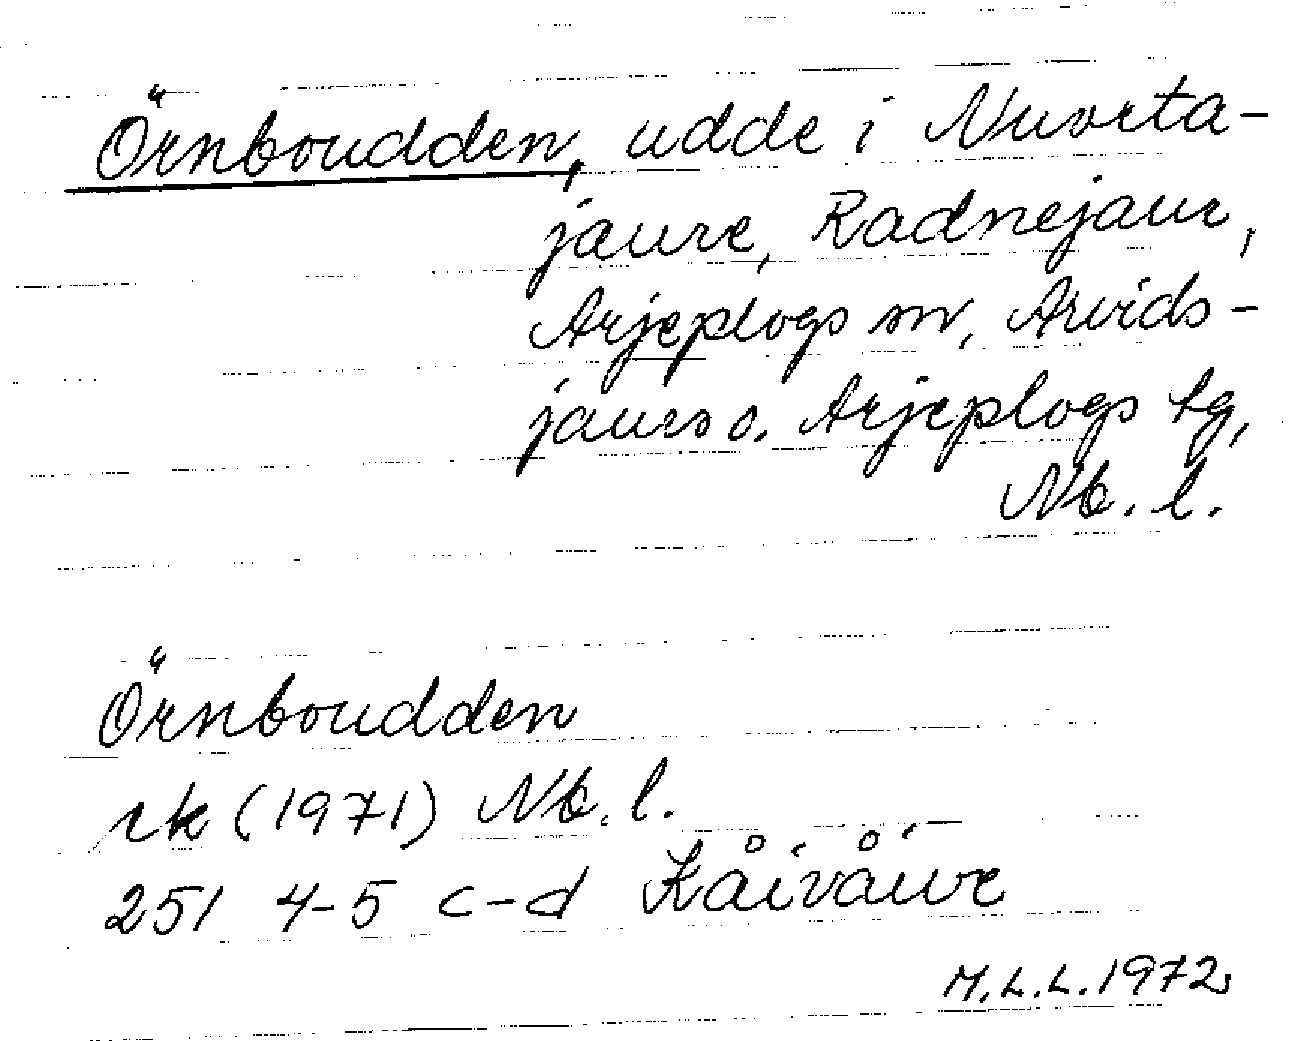 Örnboudden, udde i Nuorta-
jaure, Radnejaur,
Arjeplogs sn, Arvids-
jaurs o. Arjeplogs tg,
Nb. l.
Örnboudden
rk (1971) Nb. l.
251 4-5 c-d Kåivåive
M.L.L. 1972